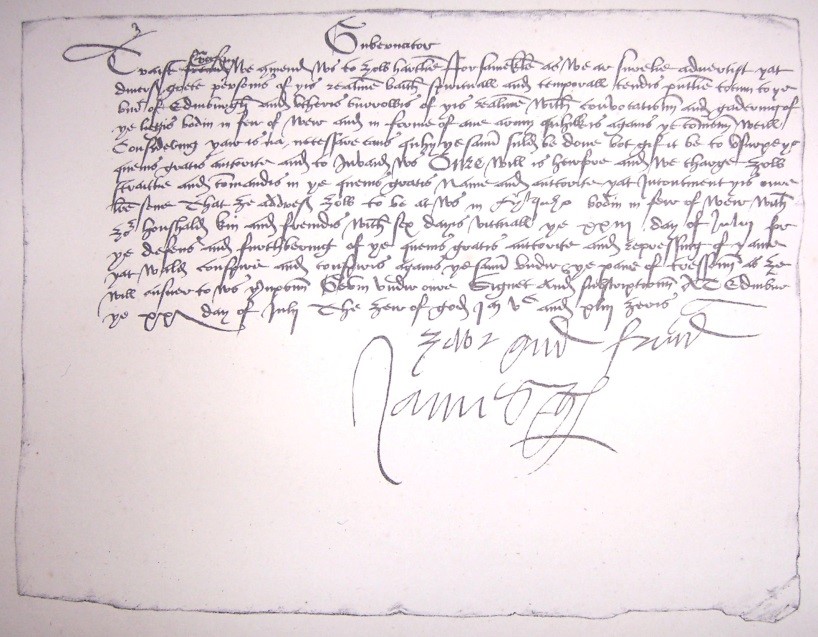 Gubernator
Traist Cousing We comend ws to zow hartlie ffor samekle as We ar surelie advertist yat
divers grete personis of yis realme baith spirituall and temporall tendis to cum to ye
of Edinburgh and utheris burrowis of yis realme With convocatioun and gadering of
ye liegis bodin in feir of Weir and in forme of ane army quhilk is agains ye comoun Weill
Considering yair is na necessare caus quhy ye samin suld be done bot gif it be to usurpe ye
quenis gracis autorite and to Invaid ws Oure Will is heirfor and We charge zow
straitlie and comandis in ye quenis gracis Name and autorite yat Incontinent yis oure
sene That ze addres zow to be at ws in bodin in feir of Weir With
zor houshald kin and freindis With sex dayis vittuall ye xxiii day of Julii for
ye defens and furthbering of ye quenis gracis autorite and repressing of yame
yat Wald conspire and conspiris agains ye samin Under ye pane of tressoun as ze
Will ansuer to ws yrupoun Gevin under oure Signet And subscriptioun AT Edinburgh
ye xx day of Julii The zeir of god and xliii zeris
zour gud frend
James G